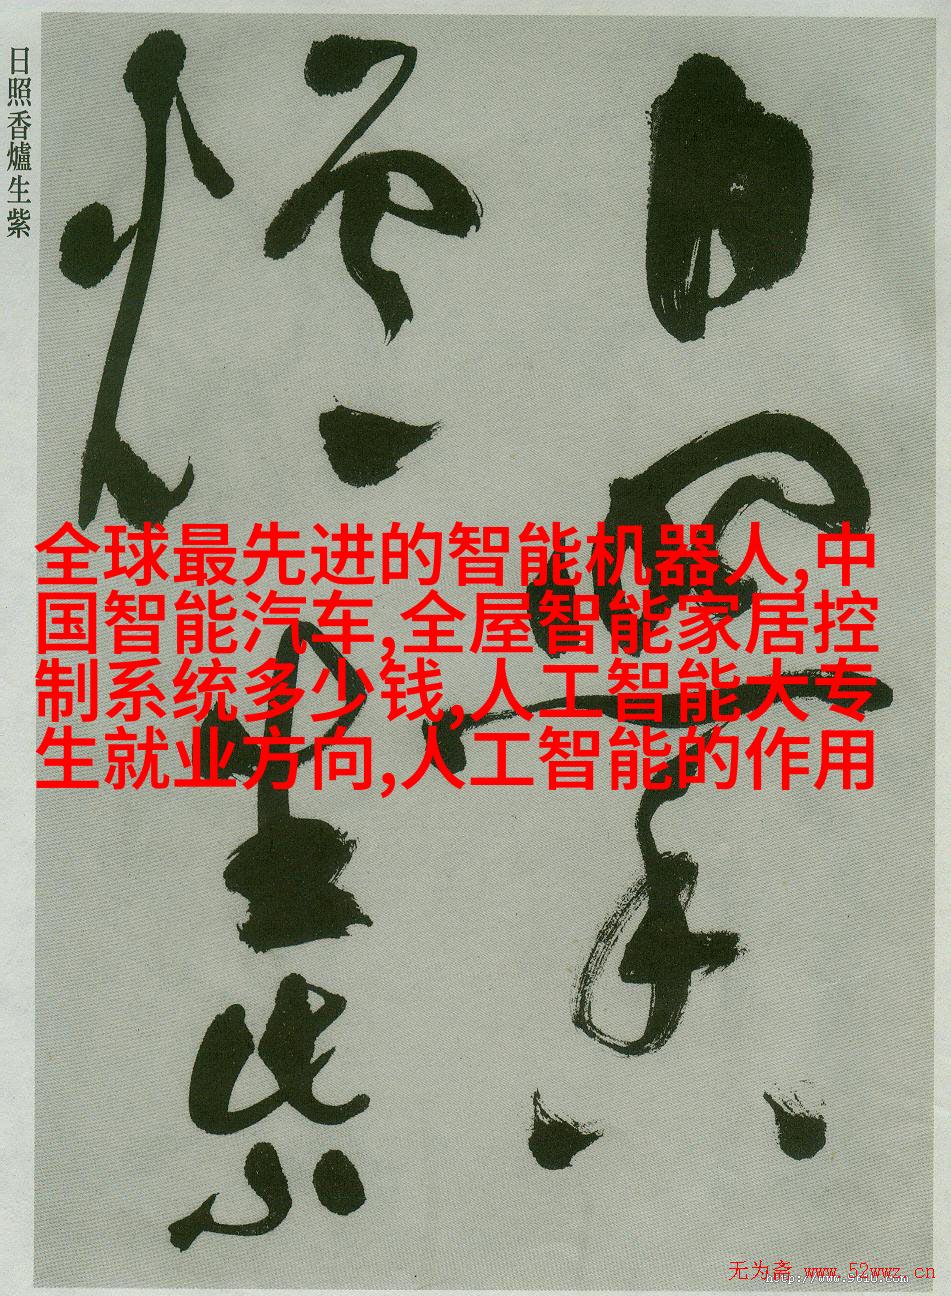 日照香爐生紫
日照香
爐生紫
全球最先进的智能机器人,中
国智能汽车,全屋智能家居控
制系统多少钱,人工智能大专
生就业方向,人工智能的作用
无为斋 www.52wwz.cn
http://www.9610.com